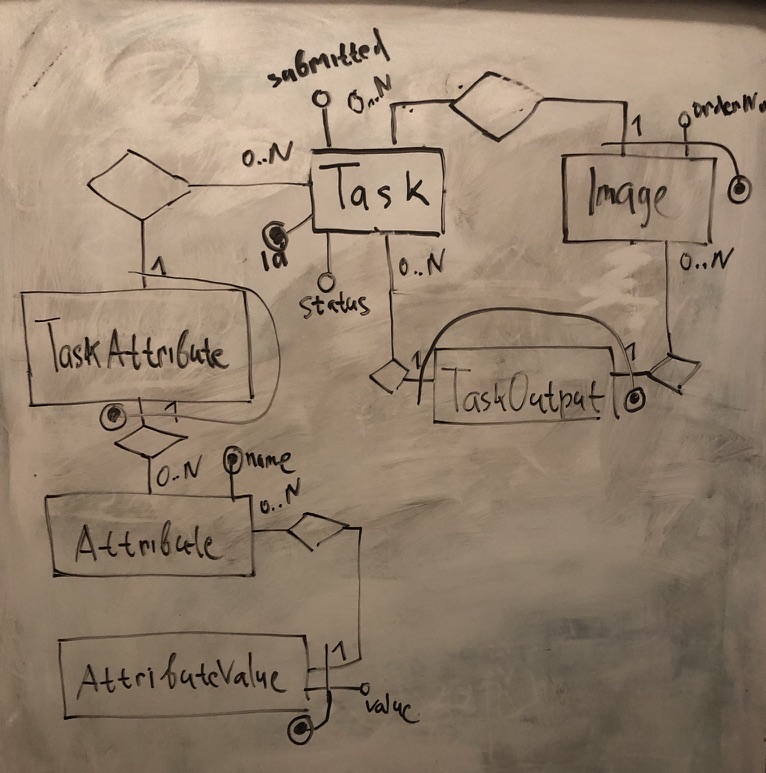 submitted
0..N
1
0..N
Task
Image
Id
status
0..N
0..N
1
TaskAttribute
1
1
TaskOutput
1
0..N
name
0..N
Attribute
1
AttributeValue
value